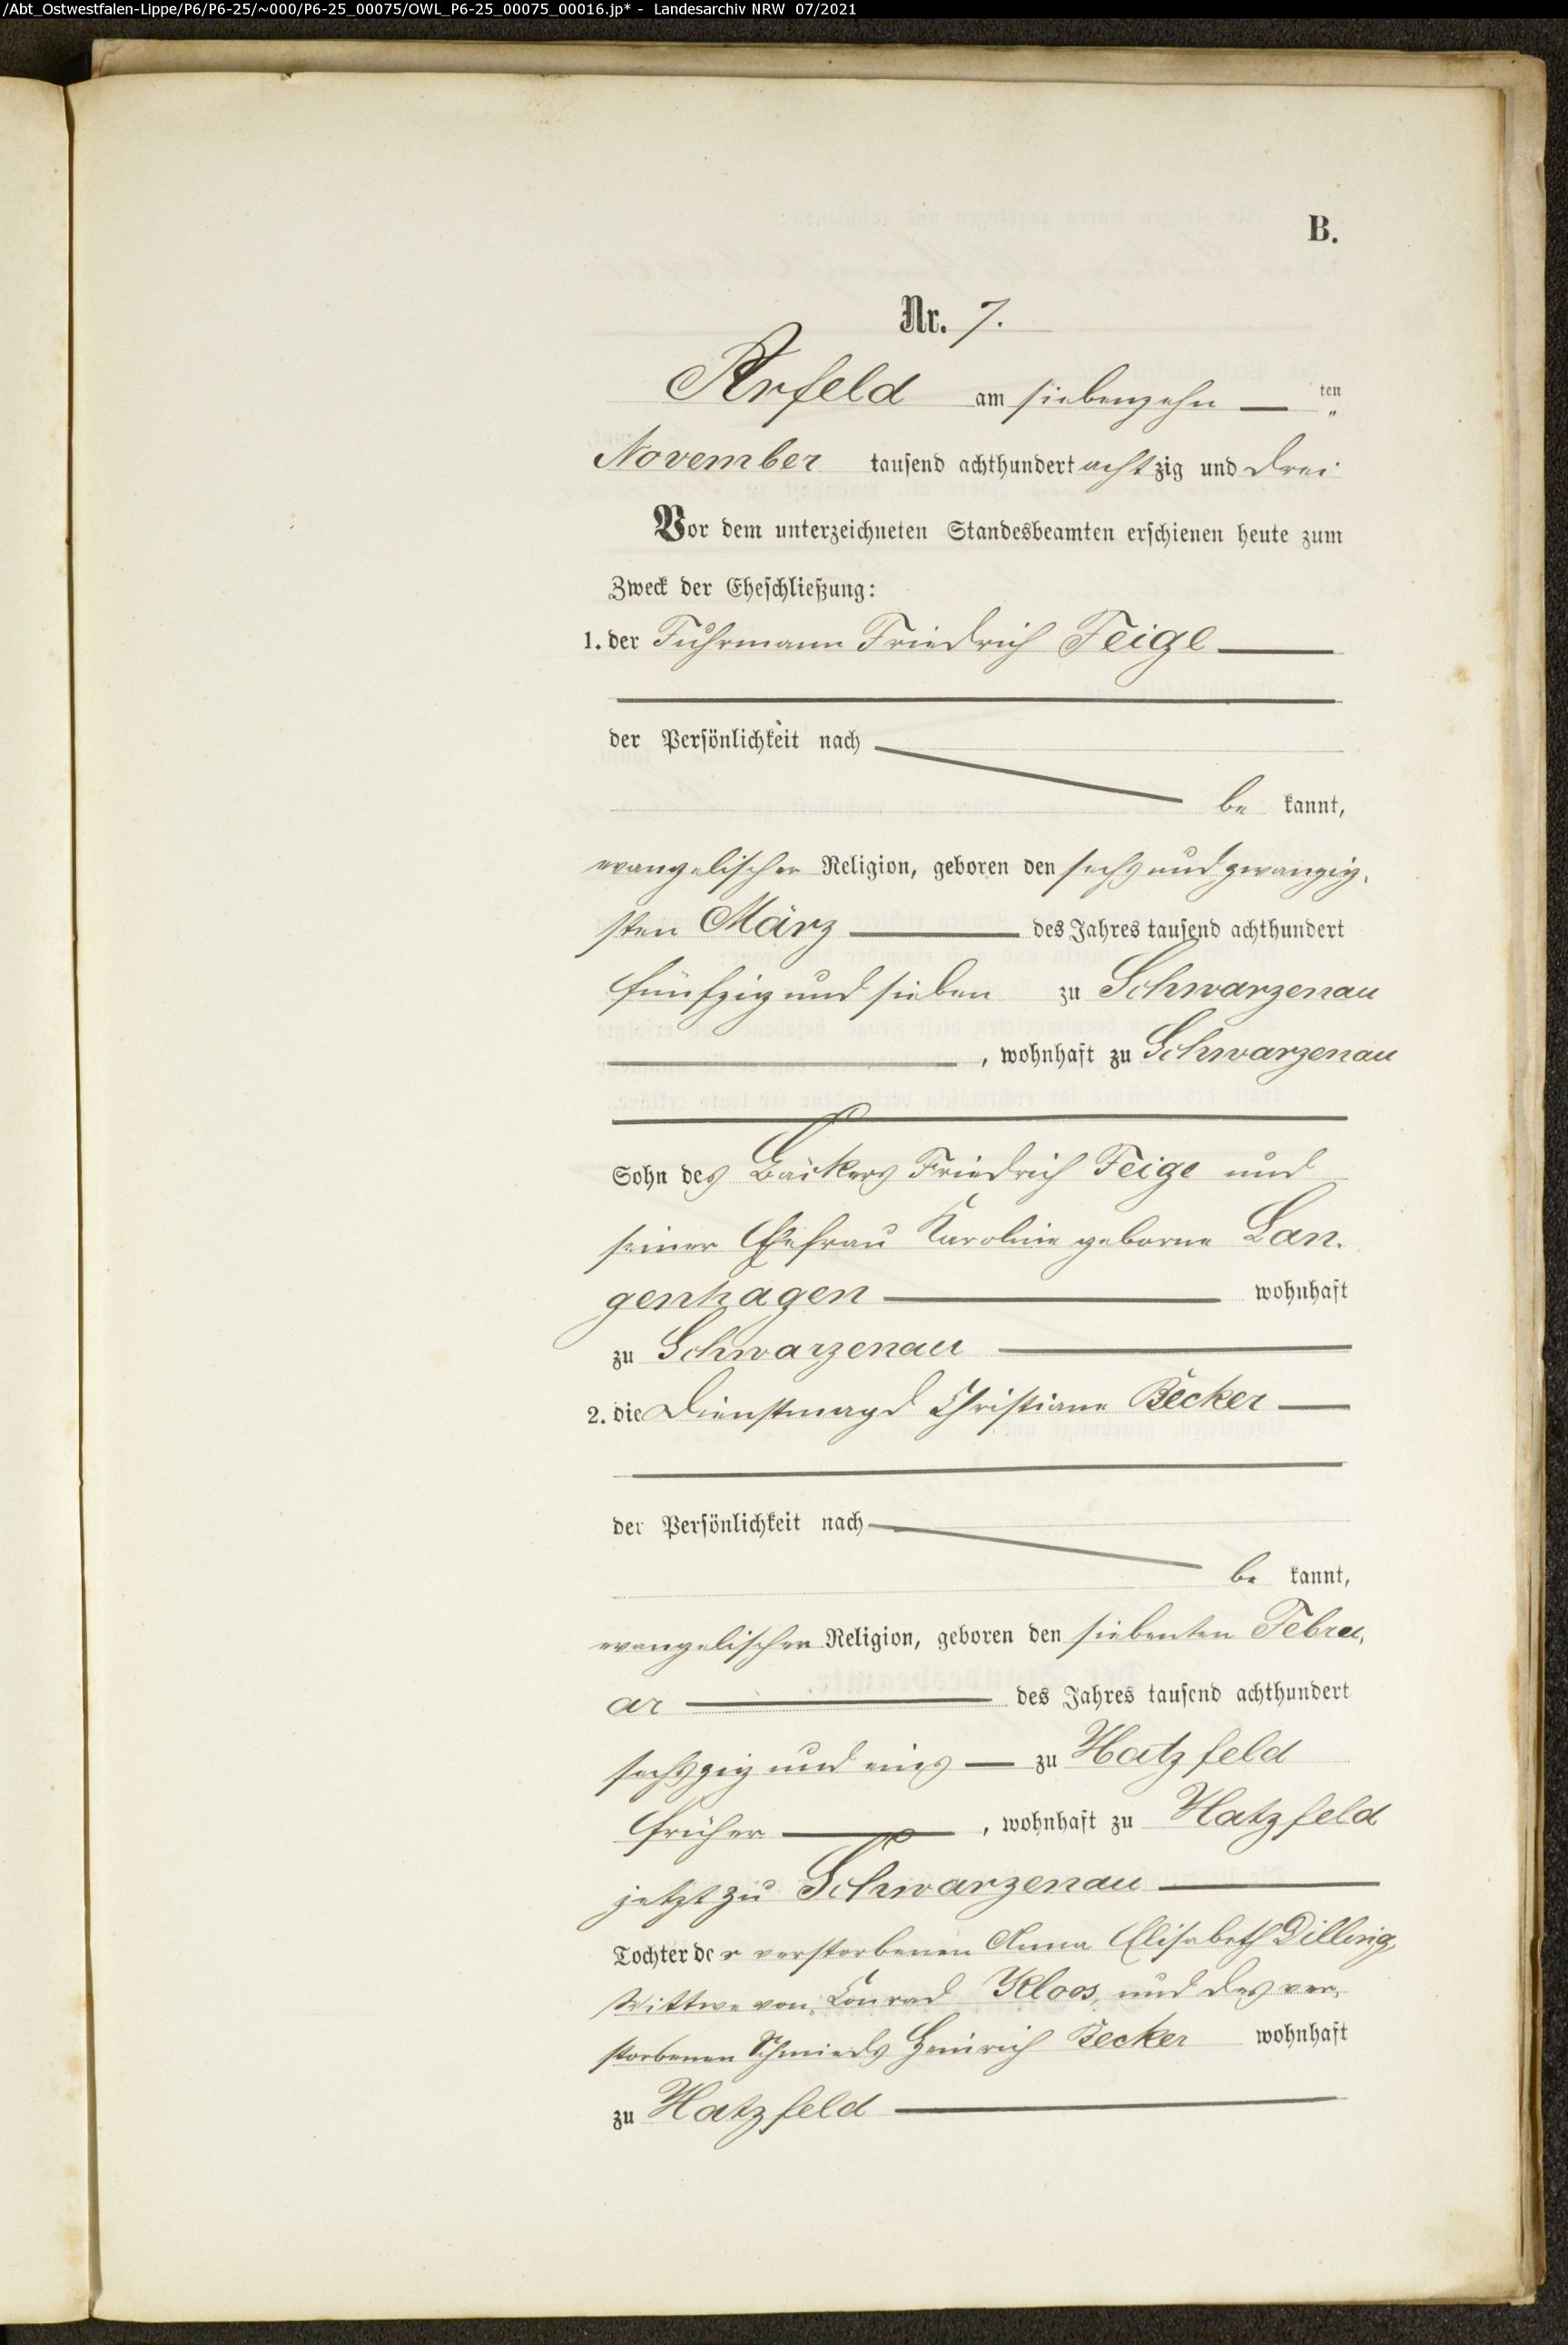 /Abt_Ostwestfalen-Lippe/P6/P6-25/~000/P6-25_00075/OWL_P6-25_00075_00016.jp* - Landesarchiv NRW 07/2021
B.
Nr. 7.
Arfeld am siebenzehn — ten
November tausend achthundert achtzig und drei
Vor dem unterzeichneten Standesbeamten erschienen heute zum
Zweck der Eheschließung:
1. der Fuhrmann Friedrich Feige —
der Persönlichkeit nach
be kannt,
evangelischer Religion, geboren den sechs und zwanzig-
sten März — des Jahres tausend achthundert
fünfzig und sieben zu Schwarzenau
—, wohnhaft zu Schwarzenau
Sohn des Bäckers Friedrich Feige und
seiner Ehefrau Karoline geborne Lan-
genhagen — wohnhaft
zu Schwarzenau —
2. die Dienstmagd Christiane Becker —
der Persönlichkeit nach
be kannt,
evangelischer Religion, geboren den siebenten Febru-
ar — des Jahres tausend achthundert
sechszig und eins — zu Hatzfeld
früher —, wohnhaft zu Hatzfeld
jetzt zu Schwarzenau —
Tochter der verstorbenen Anna Elisabeth Dilling,
Wittwe von Conrad Kloos, und des ver-
storbenen Schmieds Heinrich Becker wohnhaft
zu Hatzfeld —